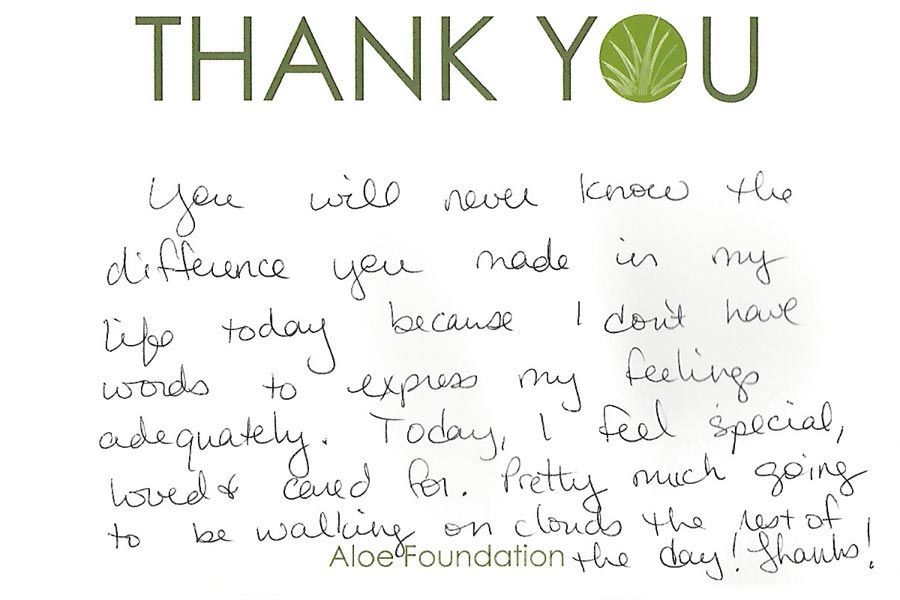 THANK YOU
You will never know the
difference you made in my
life today because I don't have
words to express my feelings
adequately. Today, I feel special,
loved & cared for. Pretty much going
to be walking on clouds the rest of
the day! Thanks!
Aloe Foundation